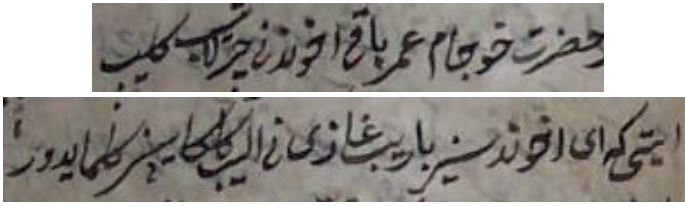 حضرت خوجام عمر باقی اخوندنی چرلاب کلیب
ایتی که ای اخوند سیز باریب غازی نی الیب کلکای سیز کلمایدور